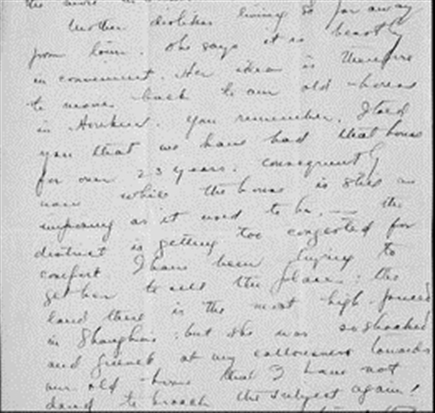 Mother dislikes living so far away
from town. She says it is beastly
inconvenient. Her idea is therefore
to move back to our old home
in Honkew. You remember, I told
you that we have had that house
for over 23 years. Consequently
now while the house is still as
as it used to be. — the
district is getting too congested for
comfort I have been trying to
get her to sell the place: the
land there is the most high-priced
in Shanghai: but she was so shocked
and grieved at my callousness towards
our old home that I have not
dared to broach the subject again!